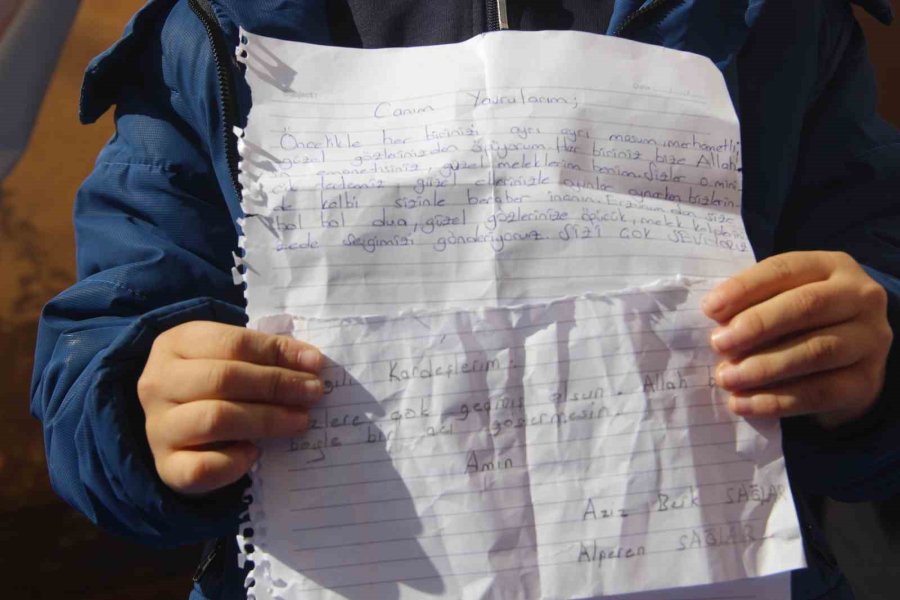 Canım Yavrularım;
Öncelikle her birinizi ayrı ayrı masum, merhametli,
güzel gözlerinizden öpüyorum. Her biriniz bize Allah'
ın emanetisiniz, güzel meleklerim benim. Sizler o mini
güzel ellerinizle oyunlar oynarken bizlerin
kalbi sizinle beraber inanın. Erzurum'dan size
bol bol dua, güzel gözlerinize öpücük, melek kalplerini
zede sevgimizi gönderiyoruz. SİZİ ÇOK SEVİYORUZ
Kardeşlerim.
çok geçmiş olsun. Allah
böyle bir acı göstermesin.
Amin
Aziz Berk SAĞLAR
Alperen SAĞLAR